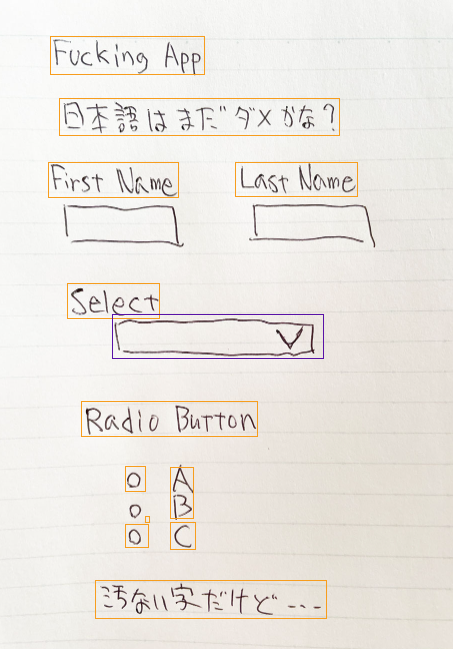 Fucking App
日本語はまだダメかな?
First Name Last Name
Select
Radio Button
A
B
C
汚ない字だけど---